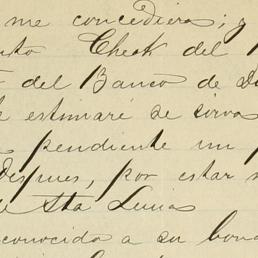 me concediera; y
Check del
del Banco de
estimaré se sirva
pendiente un
despues, por estar
de Sta Lucia
conocido a su bond